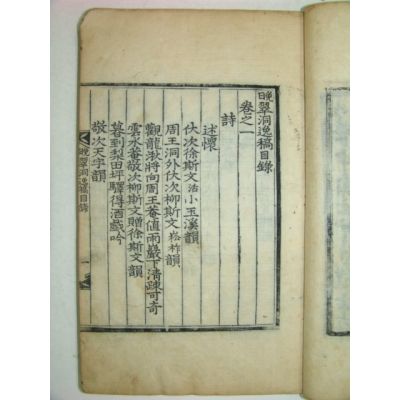 晚翠洞逸稿目錄
卷之一
詩
述懷
伏次徐斯文活小玉溪韻
周王洞外伏次柳斯文崧祚韻
觀龍湫將向周王菴値雨巖下淸疎可奇
雲水菴敬次柳斯文贈徐斯文韻
暮到梨田坪驛得酒戱吟
敬次天字韻
晚翠洞逸稿目錄
一